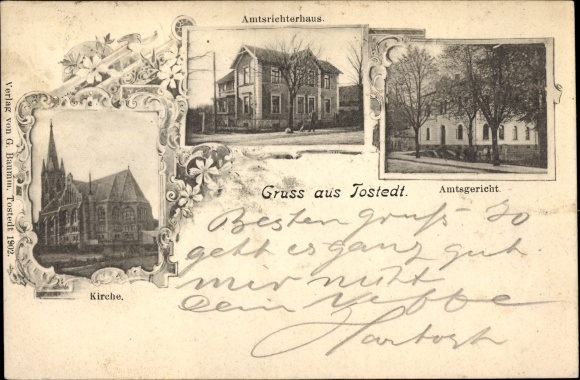 Amtsrichterhaus.
Verlag von G. Baumm, Tostedt 1902.
Gruss aus Tostedt.
Amtsgericht.
Kirche.
Besten gruß
geht es ganz gut
mir nicht